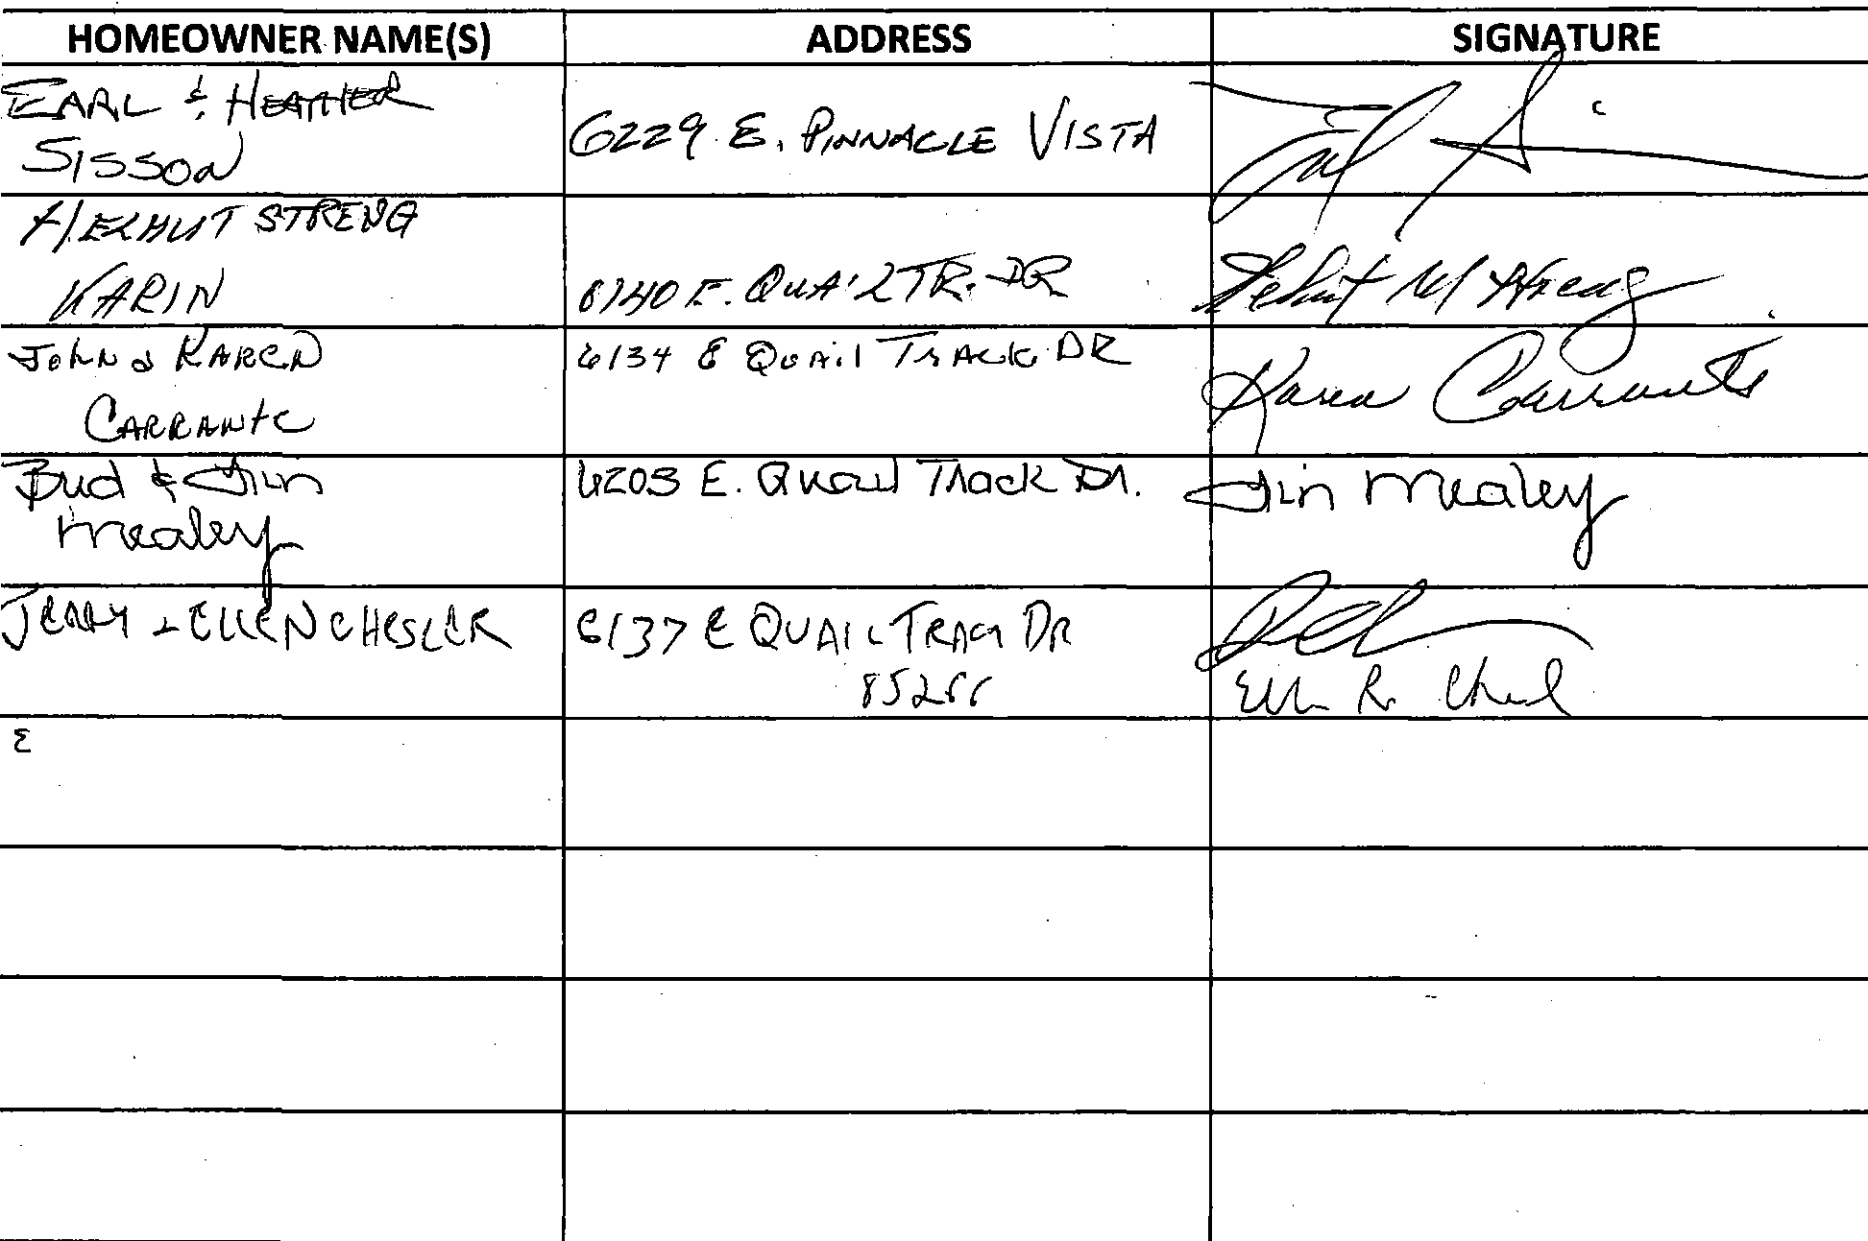 HOMEOWNER NAME(S) ADDRESS SIGNATURE
EARL & HEATHER
SISSON
6229 E. PINNACLE VISTA
HELMUT STRENG
KARIN
6140 E. QUAIL TR. DR
Helmut M Streng
JOHN & KAREN
CARRANTE
6134 E QUAIL TRACK DR
Karen Carrante
Bud & Jin
Mealey
6203 E. Quail Track Dr.
Jin Mealey
JERRY & ELLEN CHESLER
6137 E QUAIL TRACK DR
85266
Ellen R. Chesl
ε